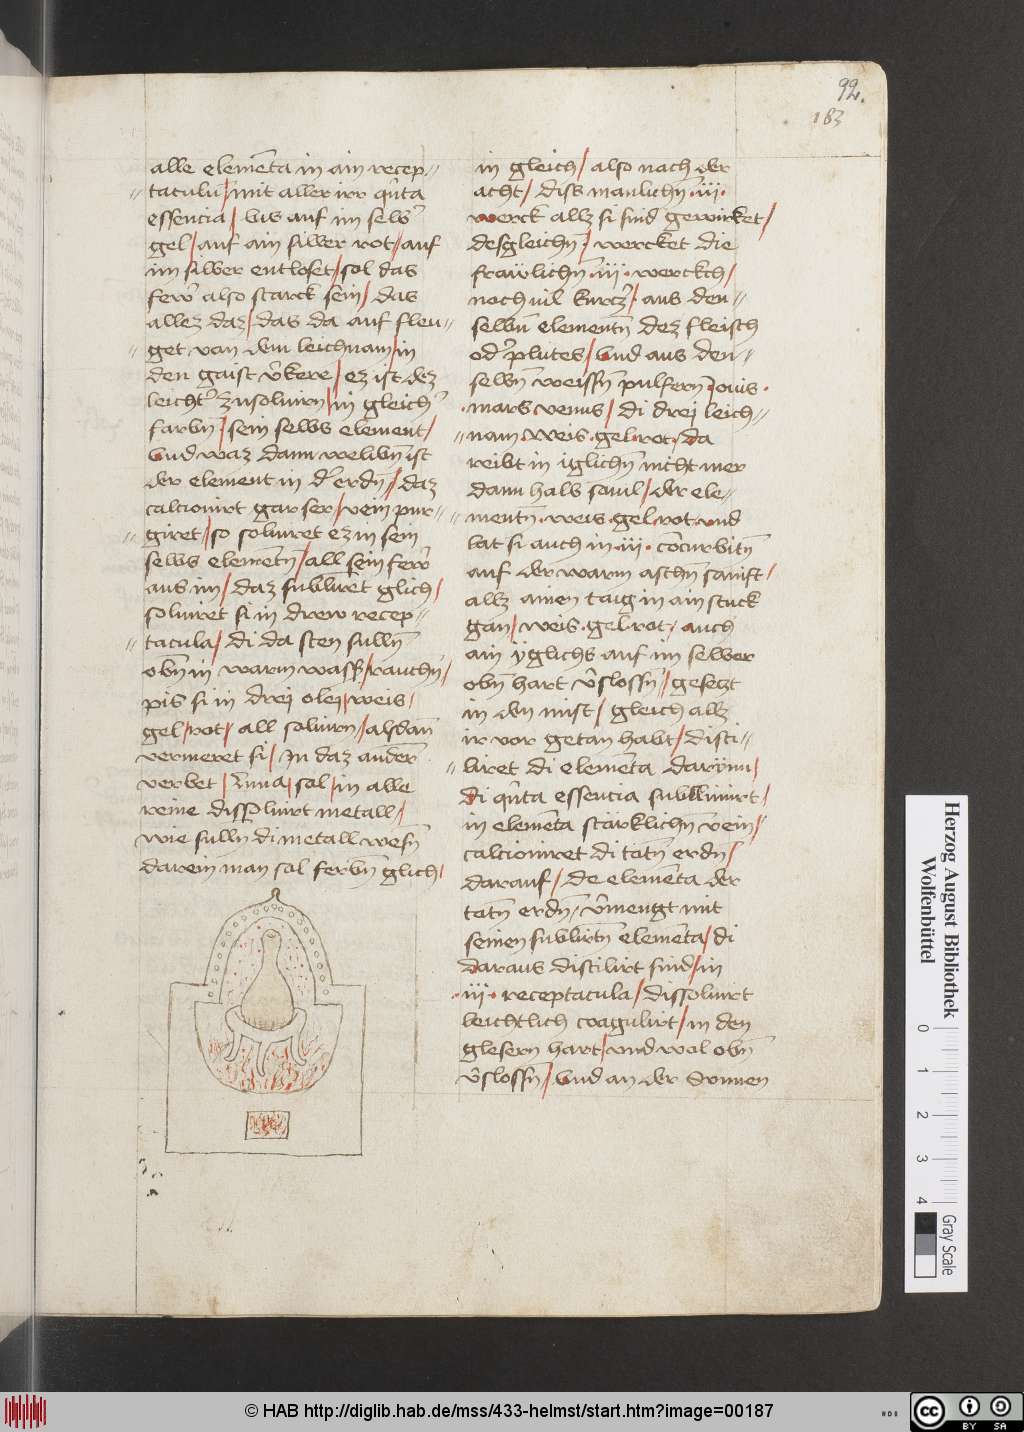 92.
183
alle elemēta in ain recep=
=taculū / mit aller irr qūta
essencia / bis auf im selb᷑
gel / auf ain silber rot / auf
im silber entloset / sol das
few᷑ also starck sein / das
allez daz / das da auf fleu=
=get van dem leichnam / in
den gaist v᷑kere / ez ist dez
leicht᷑ zusoluirn / in gleich᷑
farbn̄ / sein selbs element /
vnd waz dann welibn̄ ist
der element in d᷑ erdn̄ / daz
calcionirt gar ser / vein pur=
=giret / so soluiret ez in sein
selbs elemētn̄ / all sein few᷑
aus im / daz sublūret glich /
soluiret si in drew recep=
=tacula / di da sten sulln̄
obn̄ in warm wass᷑ / rauchn̄ /
pis si in drej olej / weis /
gel / rot / all soluirn / alsdan̄
vermeret si / In daz ander᷑
verbet / l᷑una / sol / in alle
reine dissoluirt metall /
wie sulln di metall wesn̄
darein man sol ferbn̄ glich /
in gleich / also nach der
acht / diss manlichn̄ iii ·
werck allz si sind gewirket /
desgleichn̄ / wercket die
frawlichn̄ · iij · werckch /
noch vil kurcz᷑ / aus den=
selbn̄ elementn̄ dez fleisch
od᷑ plutes / vnd aus den=
selbn̄ weissn̄ pulfern̄ Jouis ·
· mars venus / di drej leich=
=nam · weis · gel · rot · da
reibt in iglichn̄ nicht mer
dann halb souil / der ele=
=mentn̄ · weis · gel · rot · vnd
lat si auch in · iii · cōcurbitn̄
auf der warm aschn̄ sanift /
allz ainen taig in ain stuck
gan / weis · gel · rot / auch
ain ÿglichs auf im selber
obn̄ hart v᷑slossn̄ / gesetzt
in den mist / gleich allz
ir vor getan habt / disti=
=liret di elemēta darÿnn /
di qūta essencia sublimirt /
in elemēta stärklichn̄ vein /
calcioniret di totn̄ erdn̄ /
darauf / de elemēta der
totn̄ erdn̄ / v᷑mengt mit
seinen sublirtn̄ elemēta / di
daraus distilirt sind / in
· iij · receptacula / dissoluirt
leichtlich coagulirt / in den
glesern hart / vnd wol obn̄
v᷑slossn̄ / vnd an der Sunnen
Herzog August Bibliothek
Wolfenbüttel
0 1 2 3 4
Gray Scale
© HAB http://diglib.hab.de/mss/433-helmst/start.htm?image=00187
HDB
cc BY SA